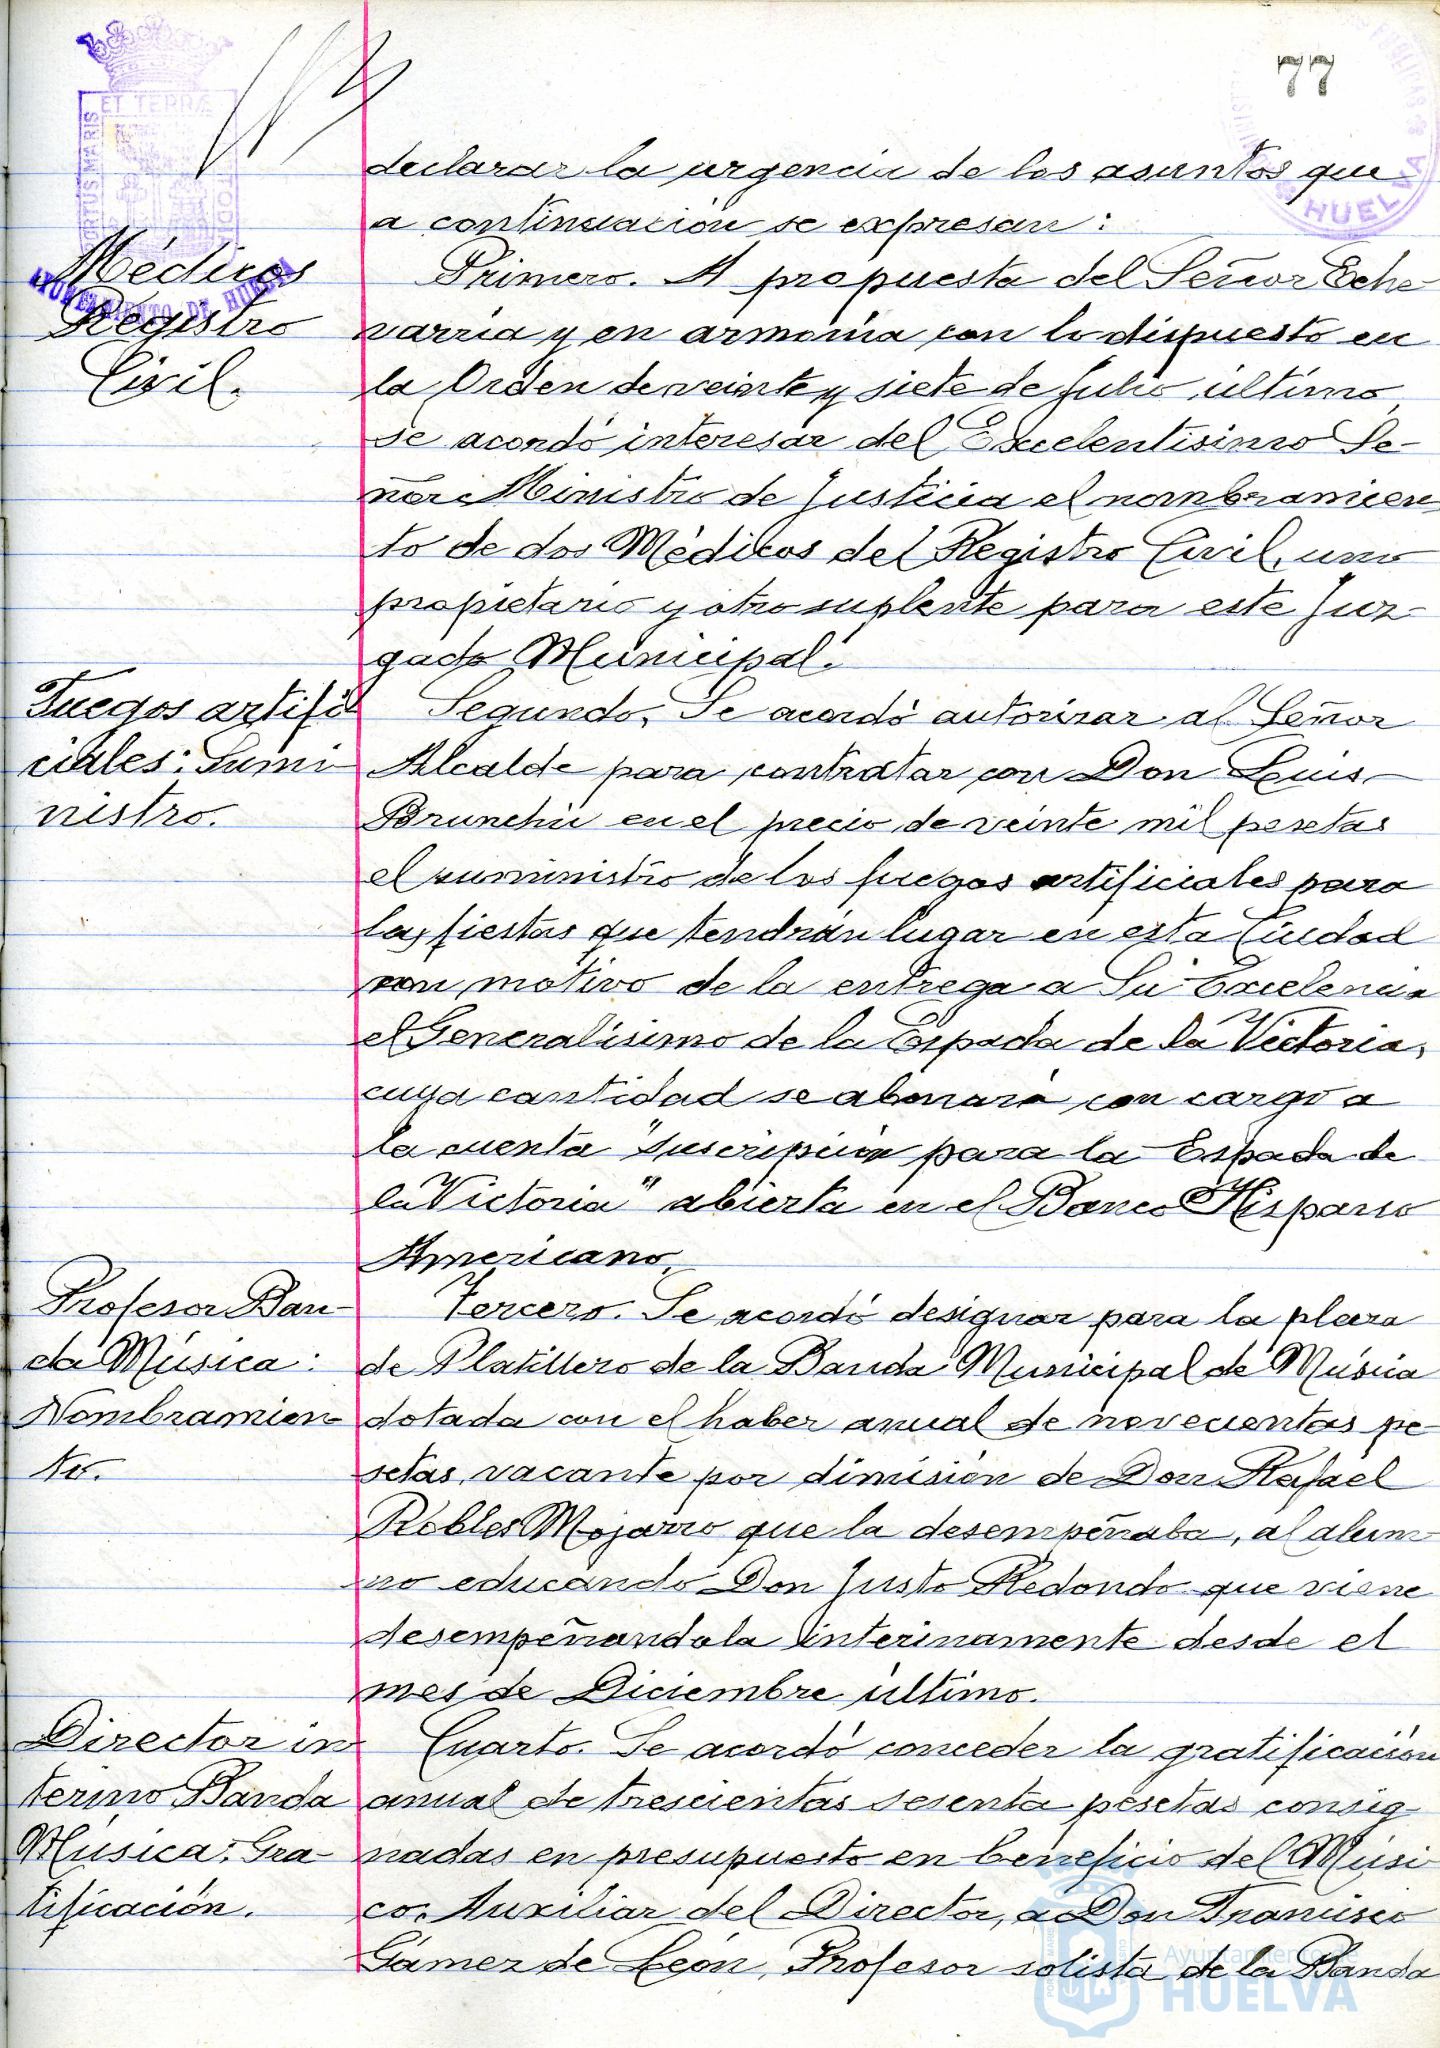 77
ET TERRÆ
PORTUS MARIS
AYUNTAMIENTO DE HUELVA
HUELVA
declarar la urgencia de los asuntos que
a continuación se expresan:
Médicos
Registro
Civil.
Primero. A propuesta del Señor Eche-
varria y en armonia con lo dispuesto en
la Orden de veinte y siete de Julio último,
se acordó interesar del Excelentisimo Se-
ñor Ministro de Justicia el nombramien-
to de dos Médicos del Registro Civil, uno
propietario y otro suplente para este Juz-
gado Municipal.
Fuegos artifi-
ciales: Sumi-
nistro.
Segundo. Se acordó autorizar al Señor
Alcalde para contratar con Don Luis
Brunchú en el precio de veinte mil pesetas
el suministro de los fuegos artificiales para
las fiestas que tendrán lugar en esta Ciudad
con motivo de la entrega a Su Excelencia
el Generalisimo de la Espada de la Victoria,
cuya cantidad se abonará con cargo a
la cuenta "Suscripción para la Espada de
la Victoria" abierta en el Banco Hispano
Americano.
Profesor Ban-
da Música:
Nombramien-
to.
Tercero. Se acordó designar para la plaza
de Platillero de la Banda Municipal de Música
dotada con el haber anual de novecientas pe-
setas, vacante por dimisión de Don Rafael
Robles Mojarro que la desempeñaba, al alum-
no educando Don Justo Redondo que viene
desempeñandola interinamente desde el
mes de Diciembre último.
Director in
terino Banda
Música: Gra-
tificación.
Cuarto. Se acordó conceder la gratificación
anual de trescientas sesenta pesetas consig-
nadas en presupuesto en beneficio del Músi
co. Auxiliar del Director, a Don Francisco
Gámez de León, Profesor solista de la Banda
Ayuntamiento de
HUELVA